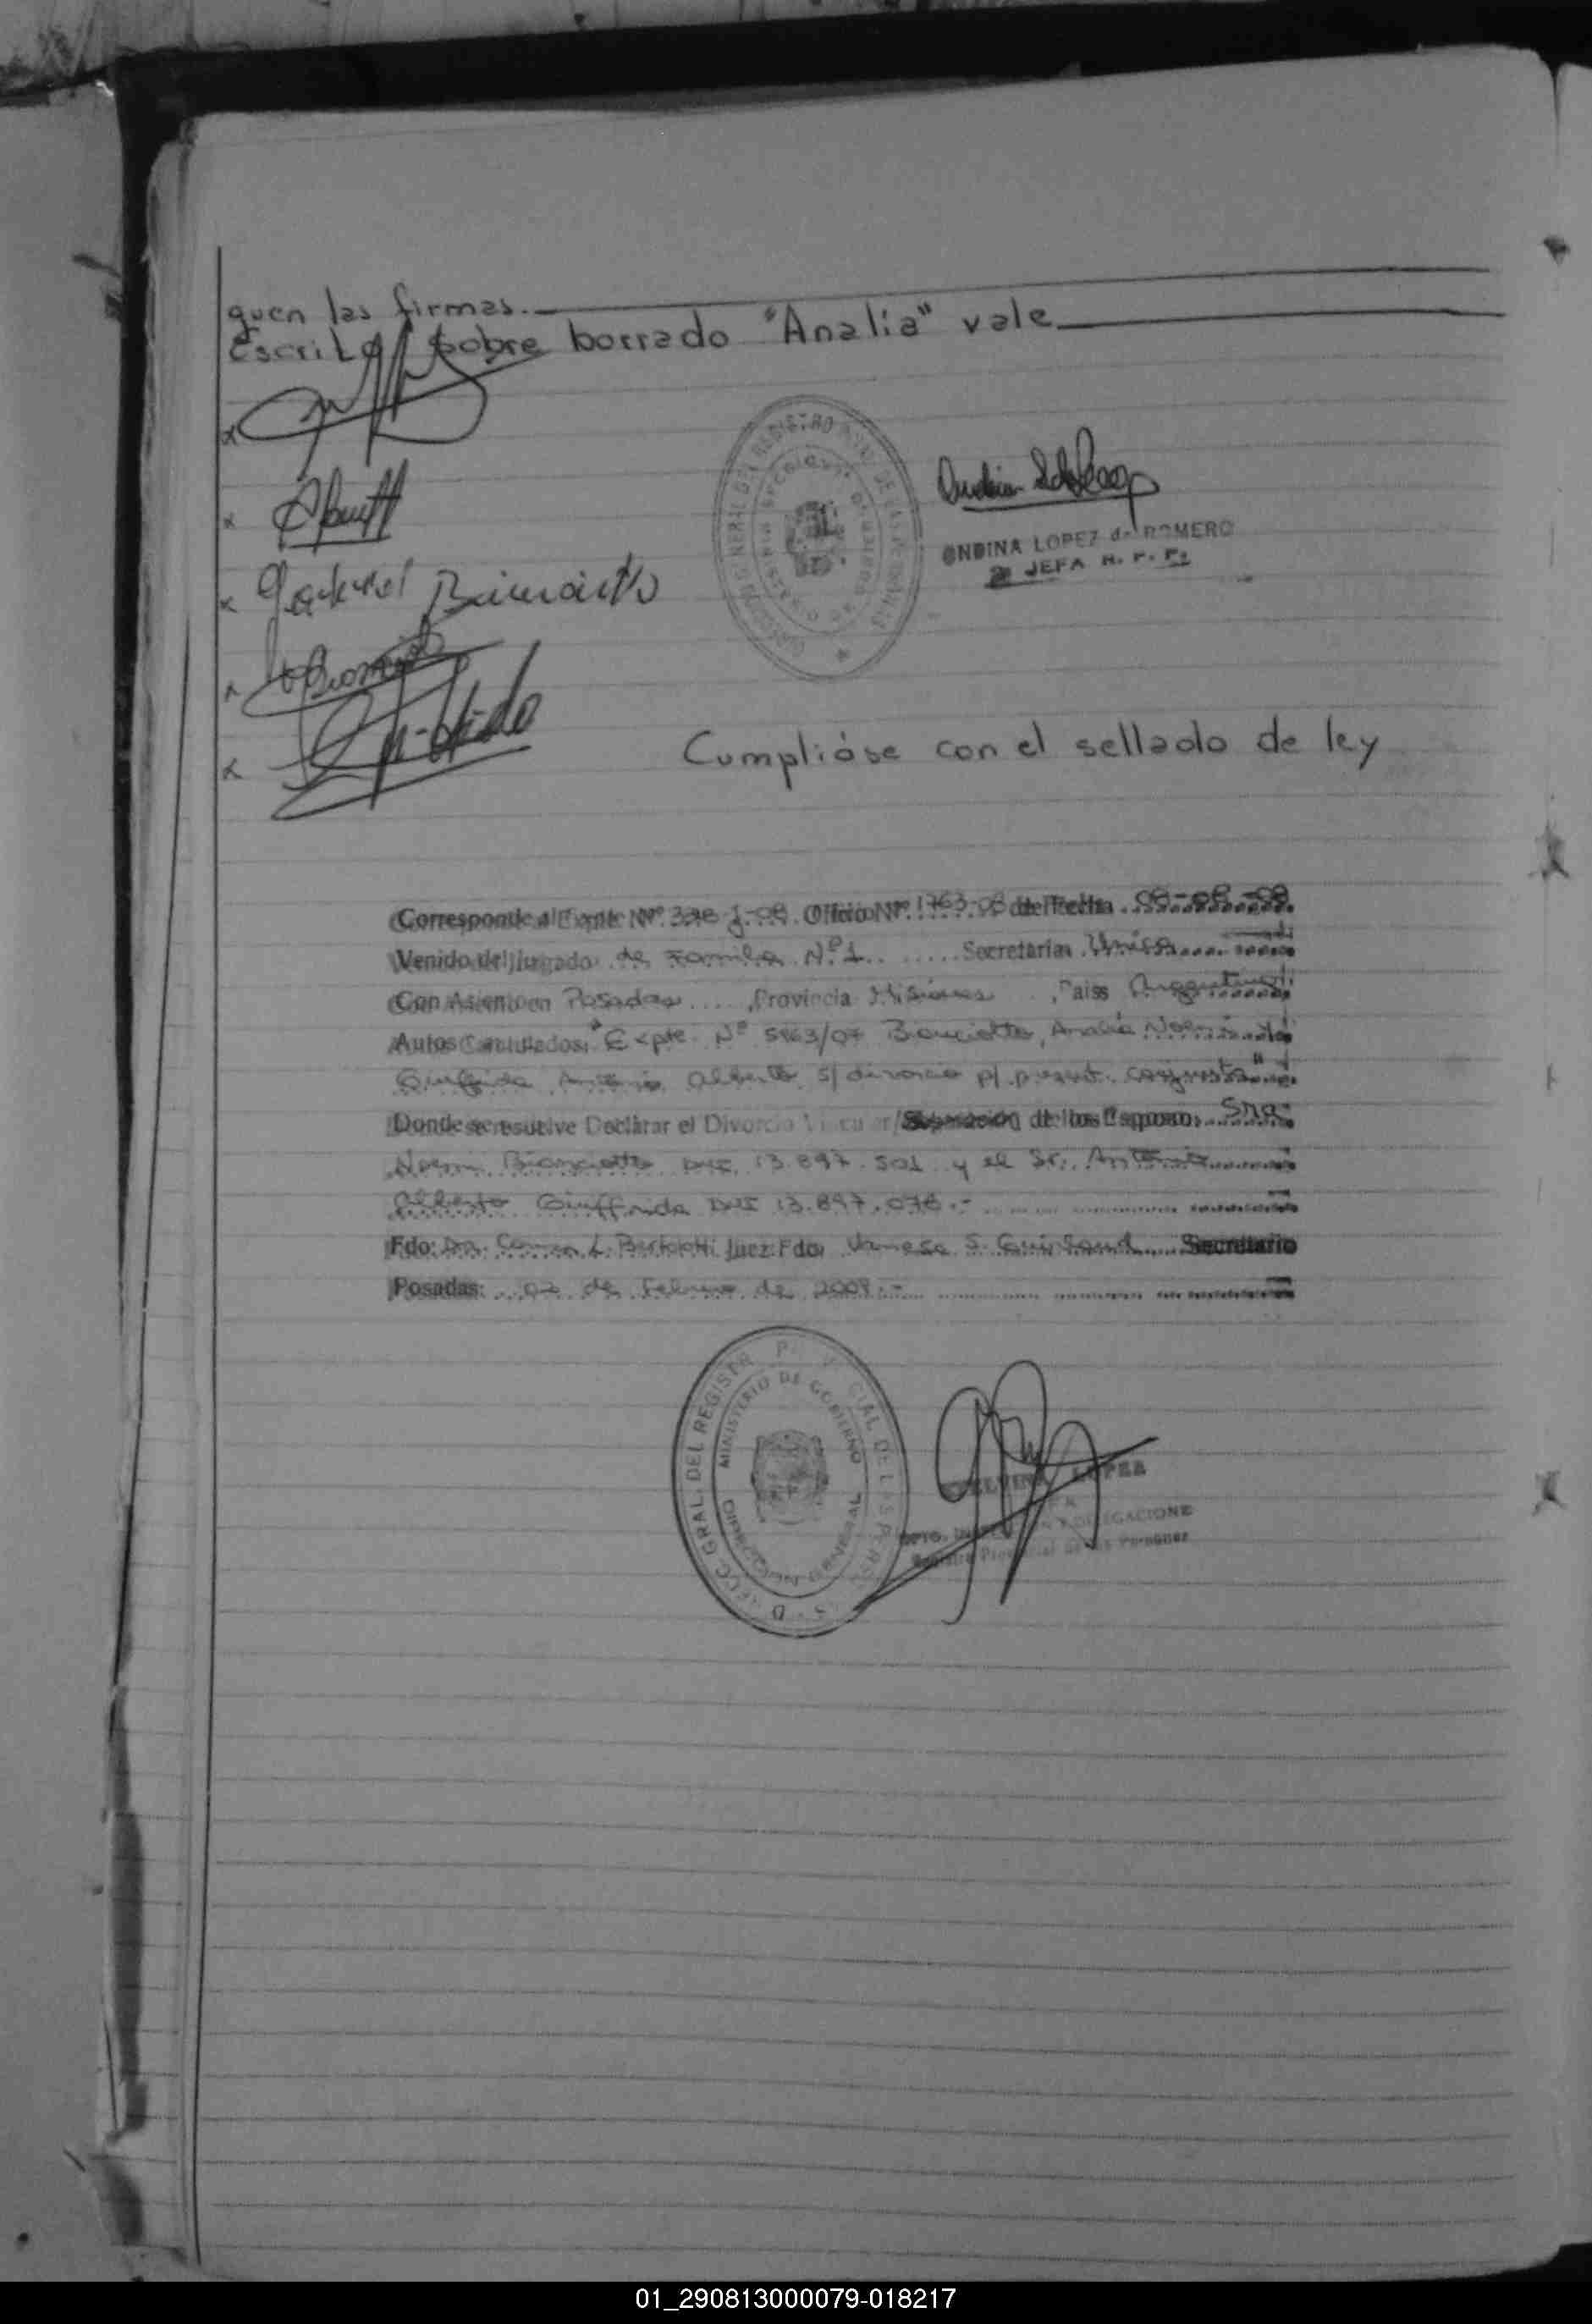 guen las firmas.
Escrito sobre borrado "Analia" vale
ONDINA LOPEZ de ROMERO
JEFA R. P. P.
Cumplióse con el sellado de ley
Corresponde al Expte Nº 398-J-08 Oficio Nº 1763-08 de Fecha 08-08-08
Venido del Juzgado de Familia Nº 1 Secretaria Unica
Con Asiento en Posadas, Provincia Misiones, Pais Argentina
Autos Caratulados: "Expte. Nº 5963/07 Bianciotto, Analía Noemi
Giuffrida Antonio Alberto s/ divorcio p/ present. conjunta"
Donde se resuelve Declarar el Divorcio Vincular/ de los Esposos: Sra.
Noemi Bianciotto DNI 13.897.501 y el Sr. Antonio
Alberto Giuffrida DNI 13.897.076.-
Fdo: Dra. L. Bertolotti Juez Fdo: Vanesa S. Secretario
Posadas: 02 de Febrero de 2009.-
GRAL. DEL REGISTRO PROVINCIAL DE LAS PERSONAS
MINISTERIO DE GOBIERNO
DIRECCION GENERAL
LOPEZ
Registro Provincial de las Personas
01_290813000079-018217